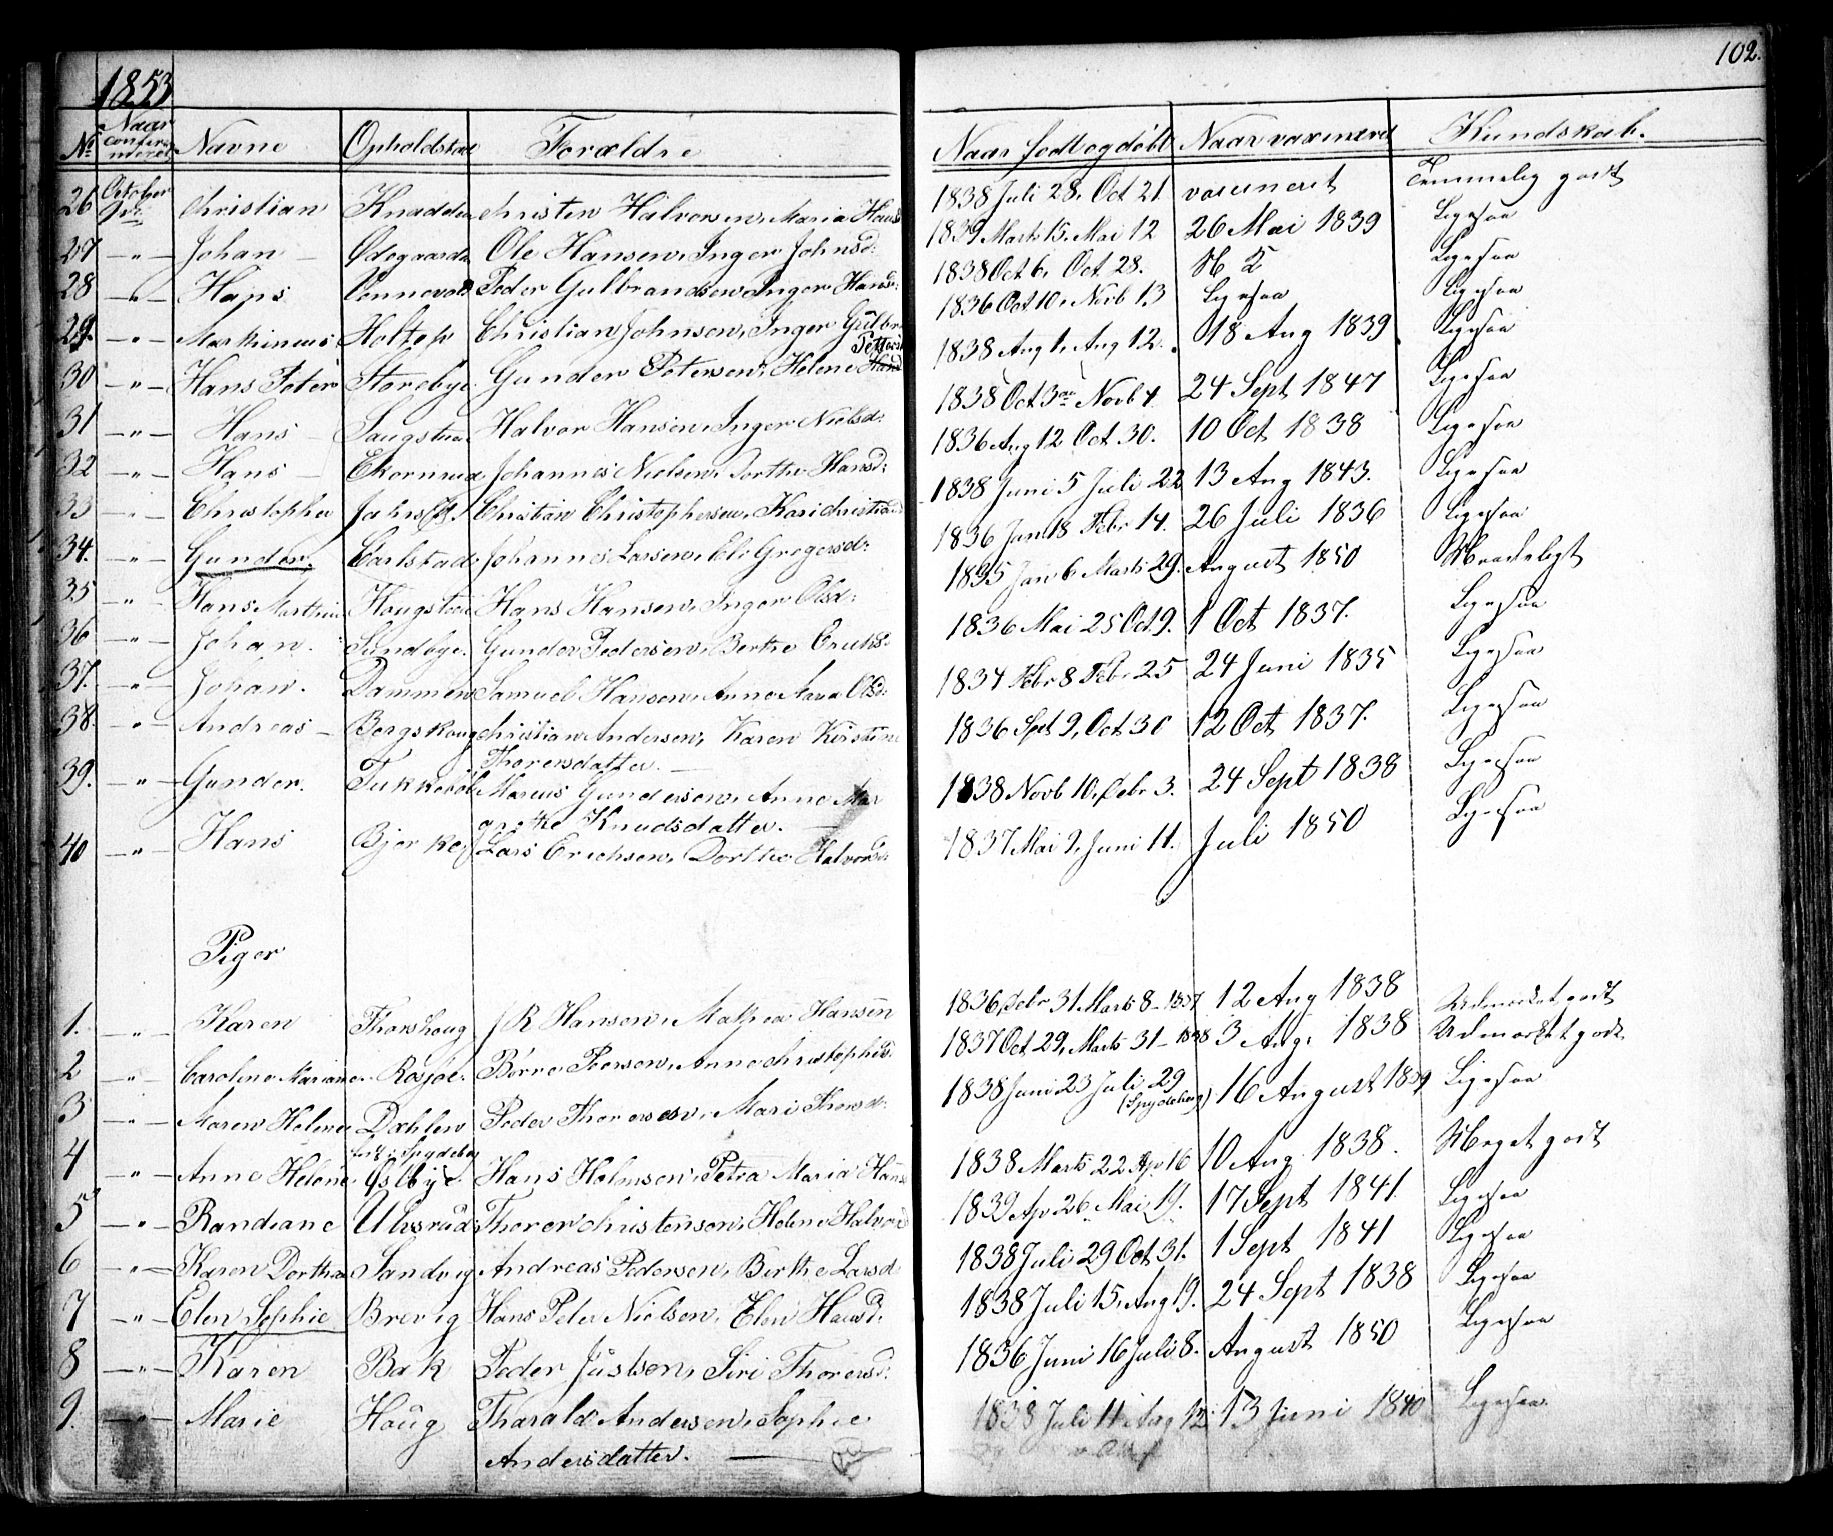 1853
102.
No Naar confirmeret Navne Opholdsted Forældre Naar født og døbt Naar vaxineret Kundskab.
26 October Christian Knadden Christen Halvorsen, Maria Hansd 1838 Juli 28, Oct 21 vaxineret Temmelig godt
27 — " — Johan — Ødegaarden Ole Hansen, Inger Johnsd: 1839 Marts 15, Mai 12 26 Mai 1839 Ligesaa
28 — " — Hans Peder Gulbrandsen, Inger Hansd: 1838 Oct 6, Oct 28. Ligesaa
29. — " — Martinius Holtop Christian Johnsen, Inger Gulbr 1836 Oct 10, Novb 13 Ligesaa Ligesaa
30 — " — Hans Peter Storebye Gunder Petersen, Helene Hansd 1838 Aug 1, Aug 12. 18 Aug 1839 Ligesaa
31 — " — Hans — Saugstuen Halvor Hansen, Inger Nielsd: 1838 Oct 3 Novb 4 24 Sept 1847 Ligesaa
32 — " — Hans — Ekornrud Johannes Nielsen, Dorthe Hansd: 1836 Aug 12 Oct 30. 10 Oct 1838 Ligesaa
33 — " — Christopher Christian Christophersen, Kari Christiansd 1838 Juni 5 Juli 22 13 Aug 1843. Ligesaa
34. — " — Gunder. Carlstad Johannes Larsen, Eli Gregersd: 1836 Jan 18 Febr 14. 26 Juli 1836 Ligesaa
35 — " — Hans Marthin Haugsten Hans Hansen, Inger Olsd: 1835 Jan 6 Marts 29. August 1850 Maadeligt
36 — " — Johan. Sundbye. Gunder Pedersen, Berthe Eriks: 1836 Mai 25 Oct 9. 1 Oct 1837. Ligesaa
37. — " — Johan. Dammen Samuel Hansen, Anne Maria Olsd: 1834 Febr 8 Febr 25 24 Juni 1835 Ligesaa
38. — " — Andreas — Bergskoug Christian Andersen, Karen Kirstine 1836 Spt 9, Oct 30 12 Oct 1837. Ligesaa
Thorersdatter. —
39. — " — Gunder. Tukkebøl Marcus Gundersen, Anne Mar 1838 Novb 10, Debr 3. 24 Sept 1838 Ligesaa
grethe Knudsdatter. —
40 — " — Hans Bjerkeø Lars Erichsen, Dorthe Halvorsd 1837 Mai 2, Juni 11. Juli 1850 Ligesaa
Piger
1. — " — Karen Thorshoug J R Hansen, Mathea Hansen 1836, Debr 31, Marts 8 - 1837 12 Aug 1838 Udmærket godt
2 — " — Caroline Mariane Rosjøe. Børre Peersen, Anne Christophersd. 1837 Oct 29, Marts 31 - 1838 3 Aug. 1838 Udmærket godt
3 — " — Maren Helene Dæhlen Peder Thoresen, Mari Thorsd: 1838 Juni 23 Juli 29 (Spydeberg) 16 August 1839 Ligesaa
4 — " — Anne Helene Østbye Hans Holmsen, Petra Maria Hans 1838 Marts 22 Apr 16 10 Aug 1838. Meget godt
5 — " — Randiane Ulvsrud Thorer Christensen, Helene Halvorsd 1839 Apr 26 Mai 19. 17 Sept 1841. Ligesaa
6 — " — Karen Dorthea Sandvig Andreas Pedersen, Berthe Larsd 1838 Juli 29 Oct 31. 1 Sept 1841 Ligesaa
7 — " — Elen Sophie Brevig Hans Peter Nielsen, Elen Hansd. 1838 Juli 15, Aug 19. 24 Sept 1838 Ligesaa
8 — " — Karen Bak Peder Justsen, Siri Thorersd: 1836 Juni 16 Juli 8. August 1850 Ligesaa
9. — " — Marie Haug Tharald Andersen, Sophie 1838 Juli 11 Aug 12 13 Juni 1840 Ligesaa
Andersdatter. —